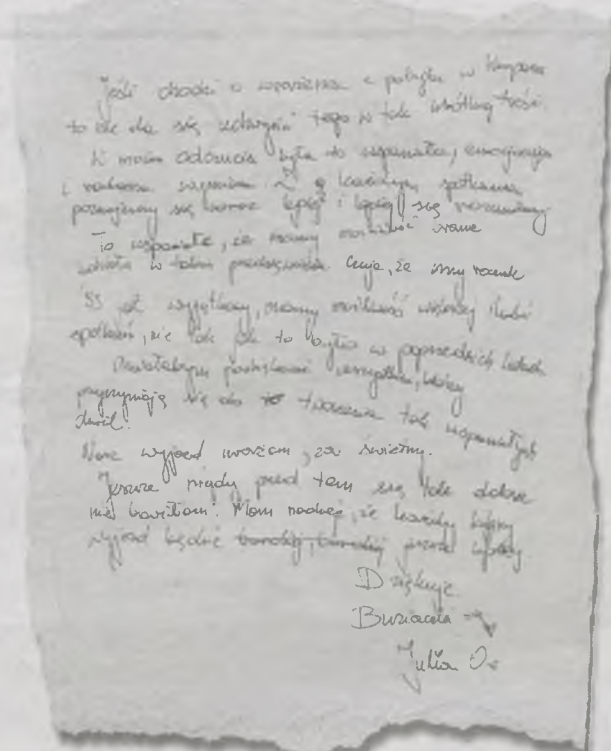 Jeśli chodzi o wrażenia z pobytu w
to nie da się tego w tak krótkiej treści.
W moim odczuciu była to wspaniała,
i radosna wymiana. Z każdym spotkaniem
poznajemy się coraz lepiej i lepiej się rozumiemy
To wspaniałe, że mamy możliwość brania
udziału w takim Czuję, że inny rocznik
jest wyjątkowy, mamy możliwość większej ilości
spotkań, nie tak jak to było w poprzednich latach
Chciałabym podziękować wszystkim, którzy
przyczyniają się do tworzenia tak wspaniałych
chwil!
Nasz wyjazd uważam, za świetny.
Jeszcze nigdy przed tem się tak dobrze
nie bawiłam! Mam nadzieję, że każdy kolejny
wyjazd będzie bardziej, bardziej jeszcze lepszy.
Dziękuję
Buziaczki
Julia O.